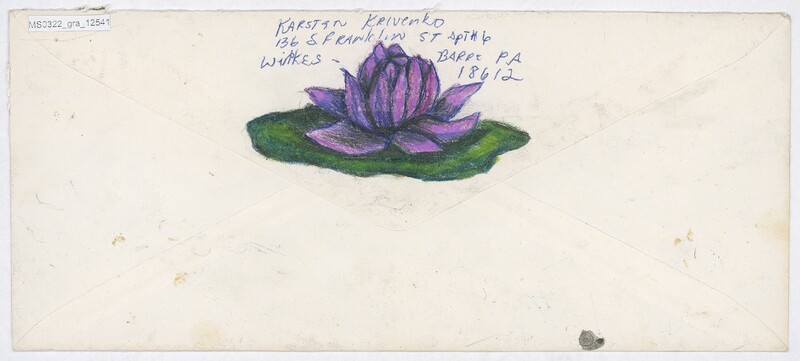 MS0322_gra_12541
KARSTEN KRIVENKO
136 S FRANKLIN ST Apt#6
WilKES - BARRE PA
18612